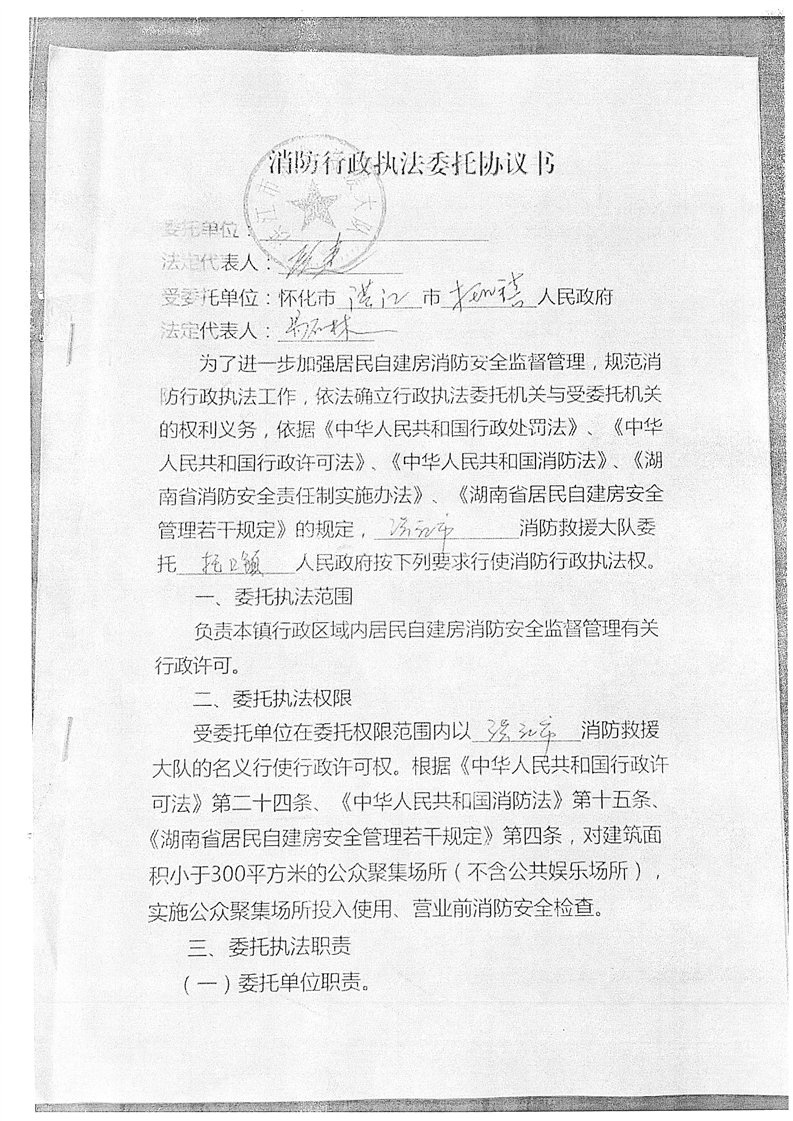 消防行政执法委托协议书
委托单位：
法定代表人：
受委托单位：怀化市 洪江 市 人民政府
法定代表人：
为了进一步加强居民自建房消防安全监督管理，规范消
防行政执法工作，依法确立行政执法委托机关与受委托机关
的权利义务，依据《中华人民共和国行政处罚法》、《中华
人民共和国行政许可法》、《中华人民共和国消防法》、《湖
南省消防安全责任制实施办法》、《湖南省居民自建房安全
管理若干规定》的规定， 洪江市 消防救援大队委
托 托口镇 人民政府按下列要求行使消防行政执法权。
一、委托执法范围
负责本镇行政区域内居民自建房消防安全监督管理有关
行政许可。
二、委托执法权限
受委托单位在委托权限范围内以 洪江市 消防救援
大队的名义行使行政许可权。根据《中华人民共和国行政许
可法》第二十四条、《中华人民共和国消防法》第十五条、
《湖南省居民自建房安全管理若干规定》第四条，对建筑面
积小于300平方米的公众聚集场所（不含公共娱乐场所），
实施公众聚集场所投入使用、营业前消防安全检查。
三、委托执法职责
（一）委托单位职责。